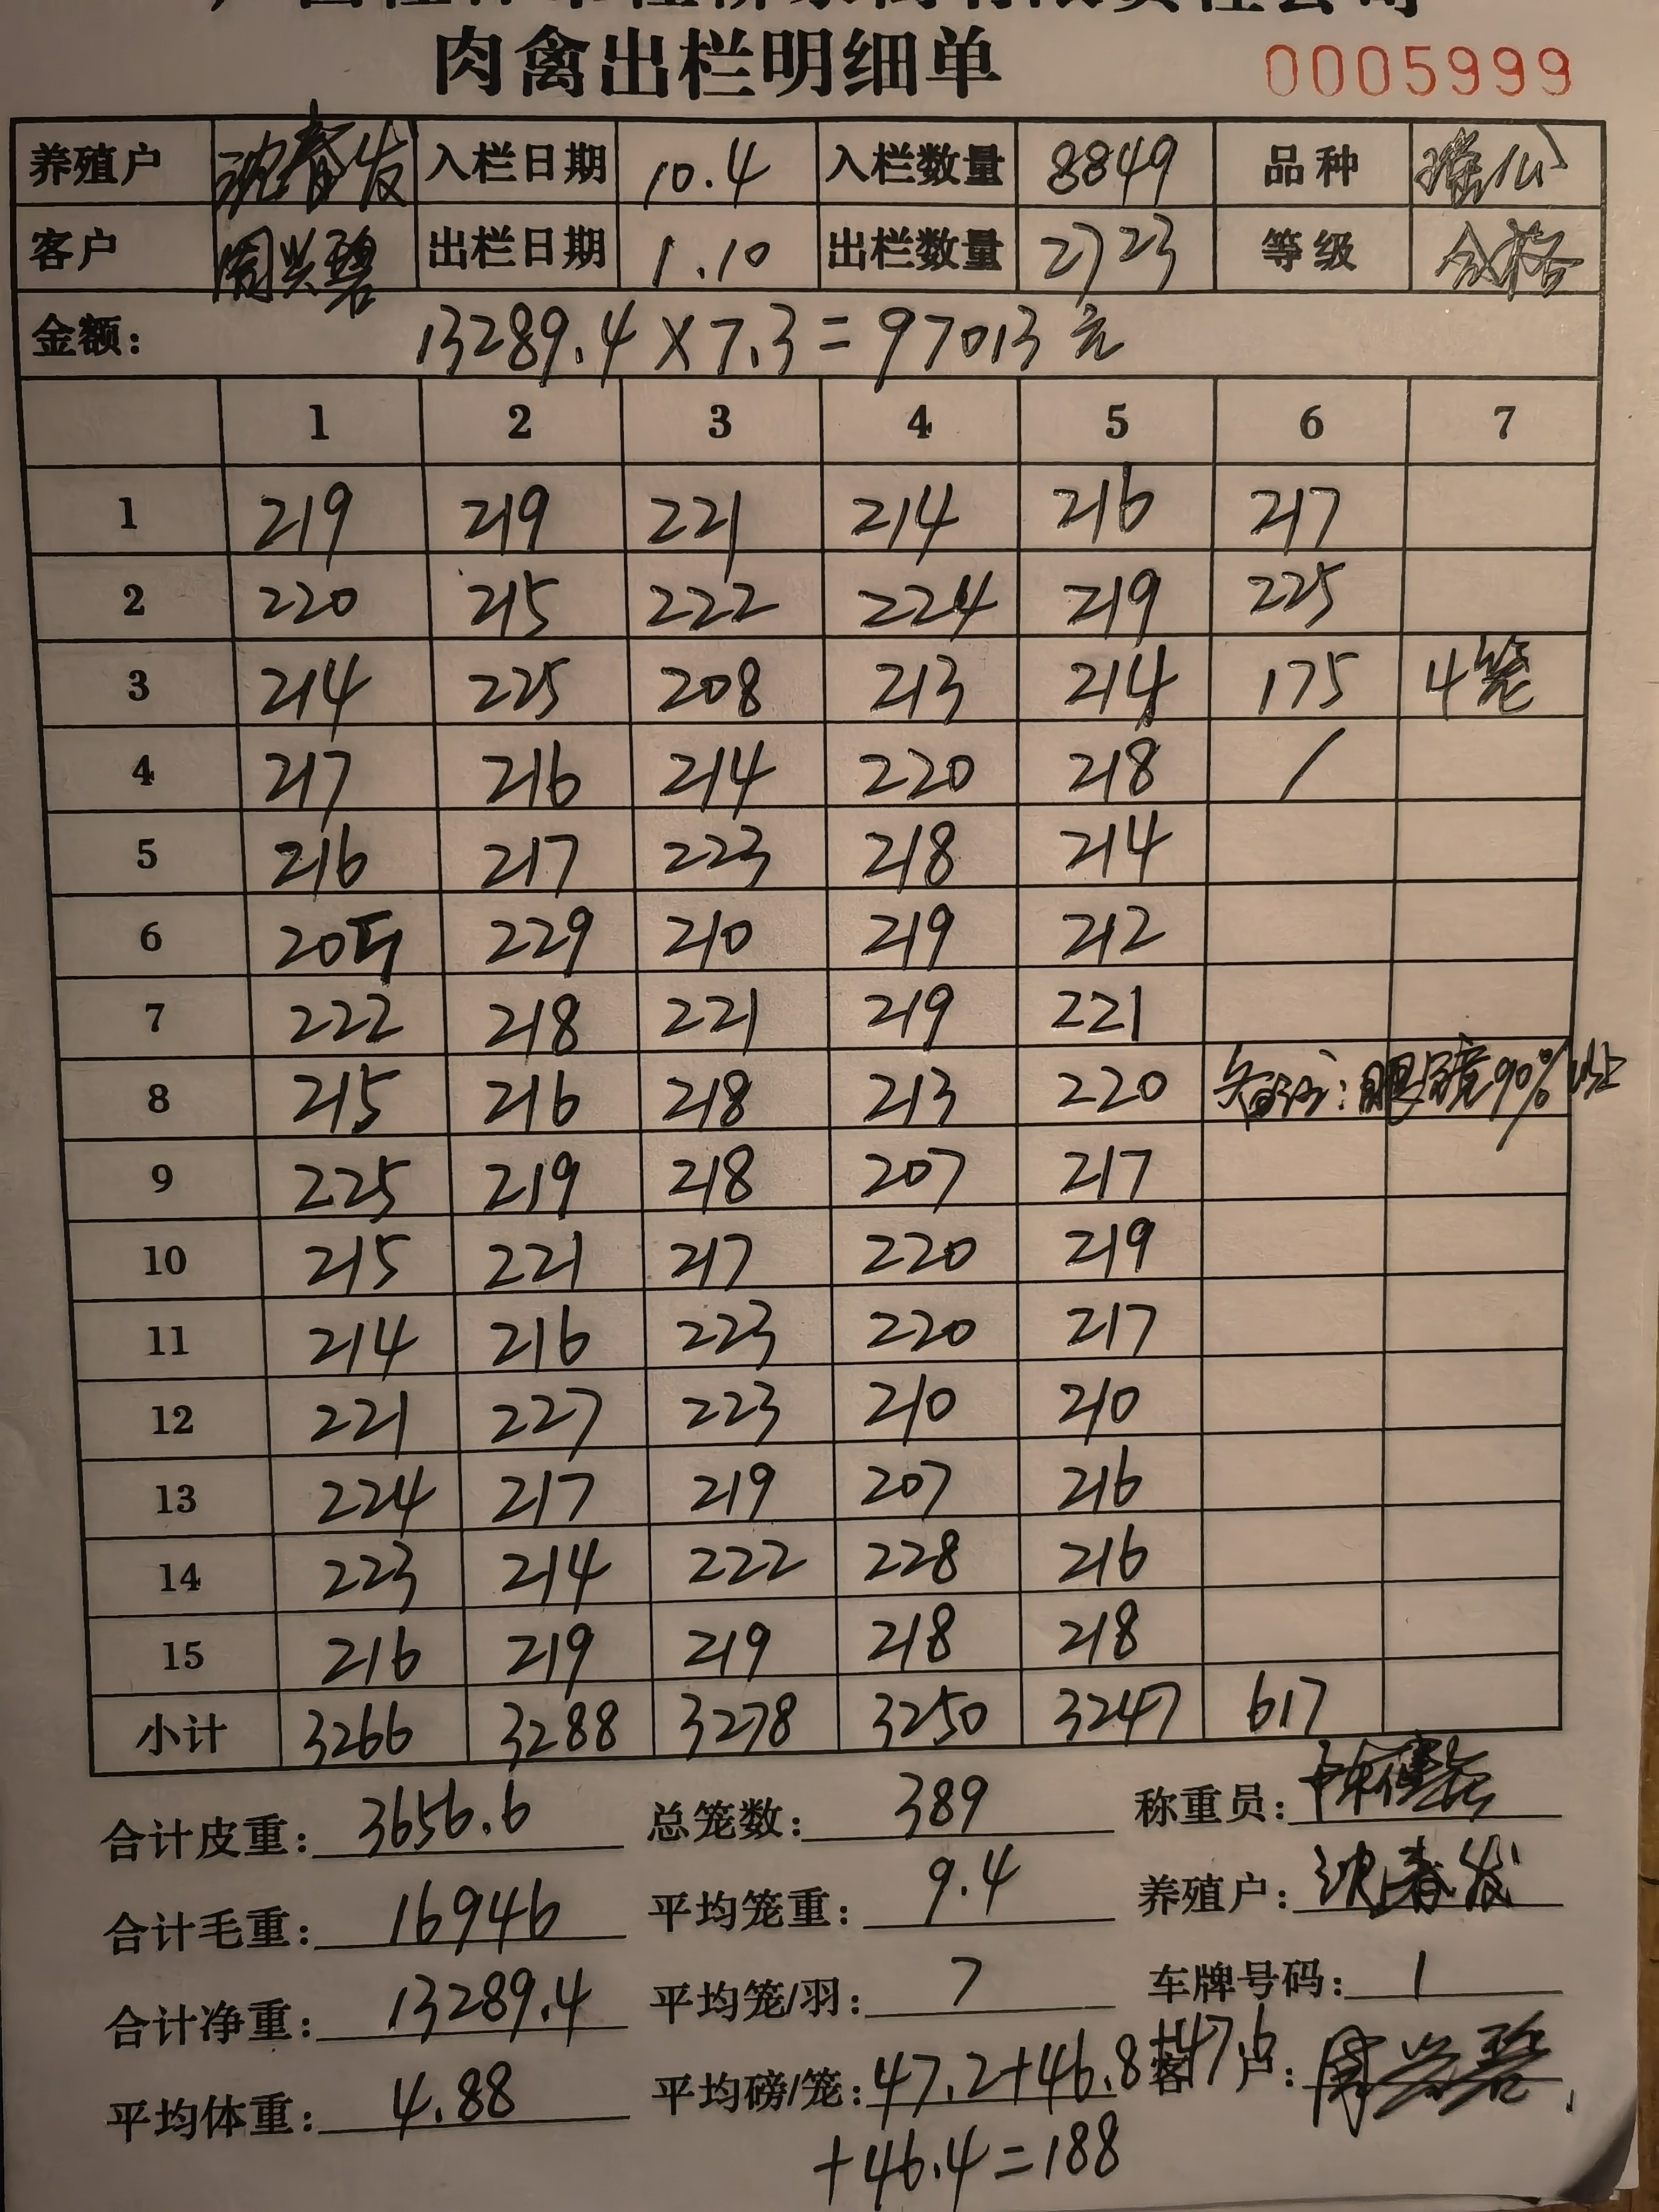 肉禽出栏明细单 0005999
养殖户 沈春发 入栏日期 10.4 入栏数量 8849 品种
客户 周兴碧 出栏日期 1.10 出栏数量 2723 等级 合格
金额: 13289.4×7.3=97013元
1 2 3 4 5 6 7
1 219 219 221 214 216 217
2 220 215 222 224 219 225
3 214 225 208 213 214 175 4笼
4 217 216 214 220 218 /
5 216 217 223 218 214
6 205 229 210 219 212
7 222 218 221 219 221
8 215 216 218 213 220 备注:眼镜90%以上
9 225 219 218 207 217
10 215 221 217 220 219
11 214 216 223 220 217
12 221 227 223 210 210
13 224 217 219 207 216
14 223 214 222 228 216
15 216 219 219 218 218
小计 3266 3288 3278 3250 3247 617
合计皮重: 3656.6 总笼数: 389 称重员:
合计毛重: 16946 平均笼重: 9.4 养殖户: 沈春发
合计净重: 13289.4 平均笼/羽: 7 车牌号码: 1
平均体重: 4.88 平均磅/笼: 47.2+46.8+47.6 客户: 周兴碧
+46.4=188